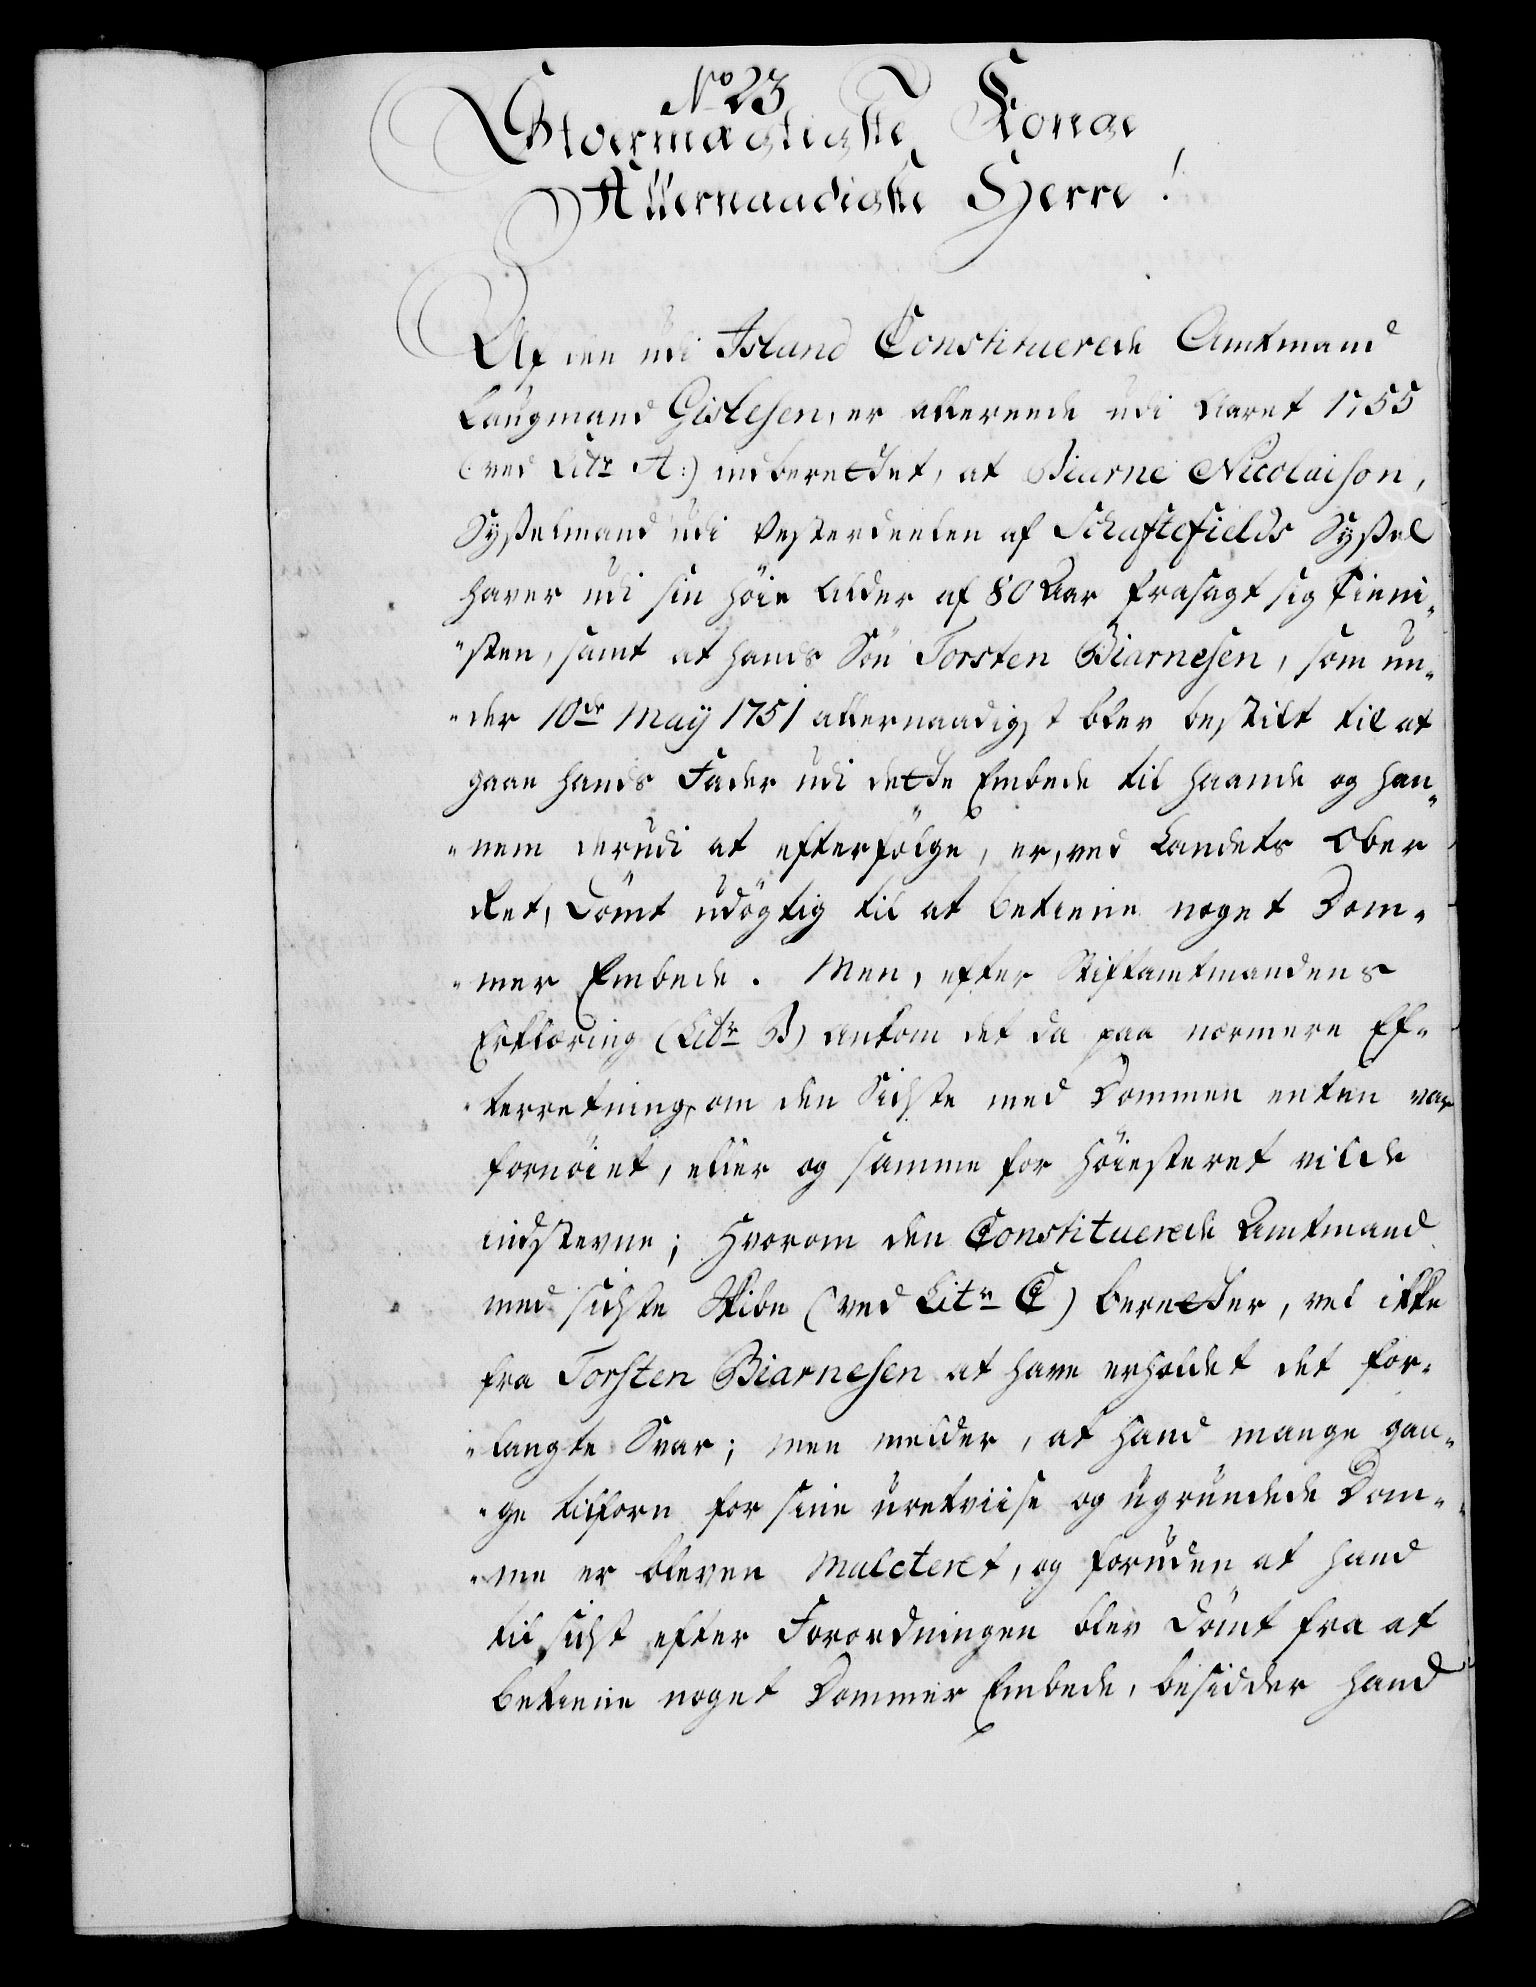 No 23
Stoermægtigste Konge
Allernaadigste Herre!
Af den udi Island Constituerede Amtmand
Laugmand Gislesen, er allereede udi Aaret 1755
(:ved Litr A:) indberettet, at Biarne Nicolaison,
Sysselmand udi Vesterdeelen af Schaftefields Syssel
haver udi sin höie Alder af 80 Aar frasagt sig Tieni-
"sten, samt at hands Sön Torsten Biarnesen, som un-
"der 10de May 1751 allernaadigst blev bestilt til at
gaae hands Fader udi dette Embede til haande og han-
"nem derudi at efterfölge, er, ved Landets Ober
Ret, Dömt udögtig til at betiene noget Dom-
"mer Embede. Men, efter Stiftamtmandens
Erklæring (Litr B) ankom det da paa nærmere Ef-
"terretning, om den Sidste med Dommen enten var
fornöiet, eller og samme for Höiesteret vilde
indstevne; Hvorom den Constituerede Amtmand
med sidste Skibe (ved Litr C) beretter, vel ikke
fra Torsten Biarnesen at have erholdet det for-
"langte Svar; men melder, at hand mange gan-
"ge tilforn for sine uretviise og ugrundede Dom-
"me er bleven Mulcteret, og foruden at hand
til sidst efter Forordningen blev Dömt fra at
betiene noget Dommer Embede, besidder hand